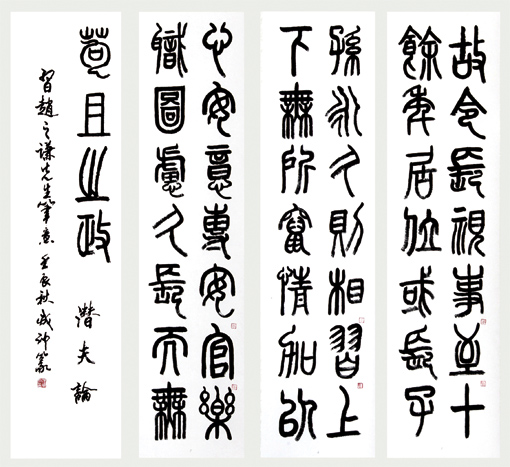 故令長視事至十
餘年居位或長子
孫永久則相習上
下無所竄情加以
心安意專安官樂
職圖慮久長而無
苟且之政 潛夫論
習趙之謙先生筆意 壬辰秋 篆